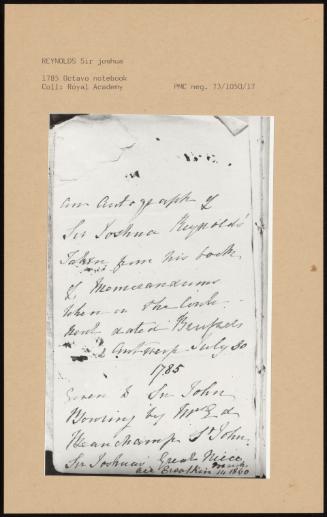 REYNOLDS Sir joshua
1785 Octavo notebook
Coll: Royal Academy PMC neg. 73/105Q/17
an Autograph of
Sir Joshua Reynolds'
Taken from his book
of Memorandums
when on the Conti-
nent dated Brussels
& Antwerp July 30
1785
Given to Sir John
Bowring by
Beauchamp St John
Sir Joshua's Great Niece